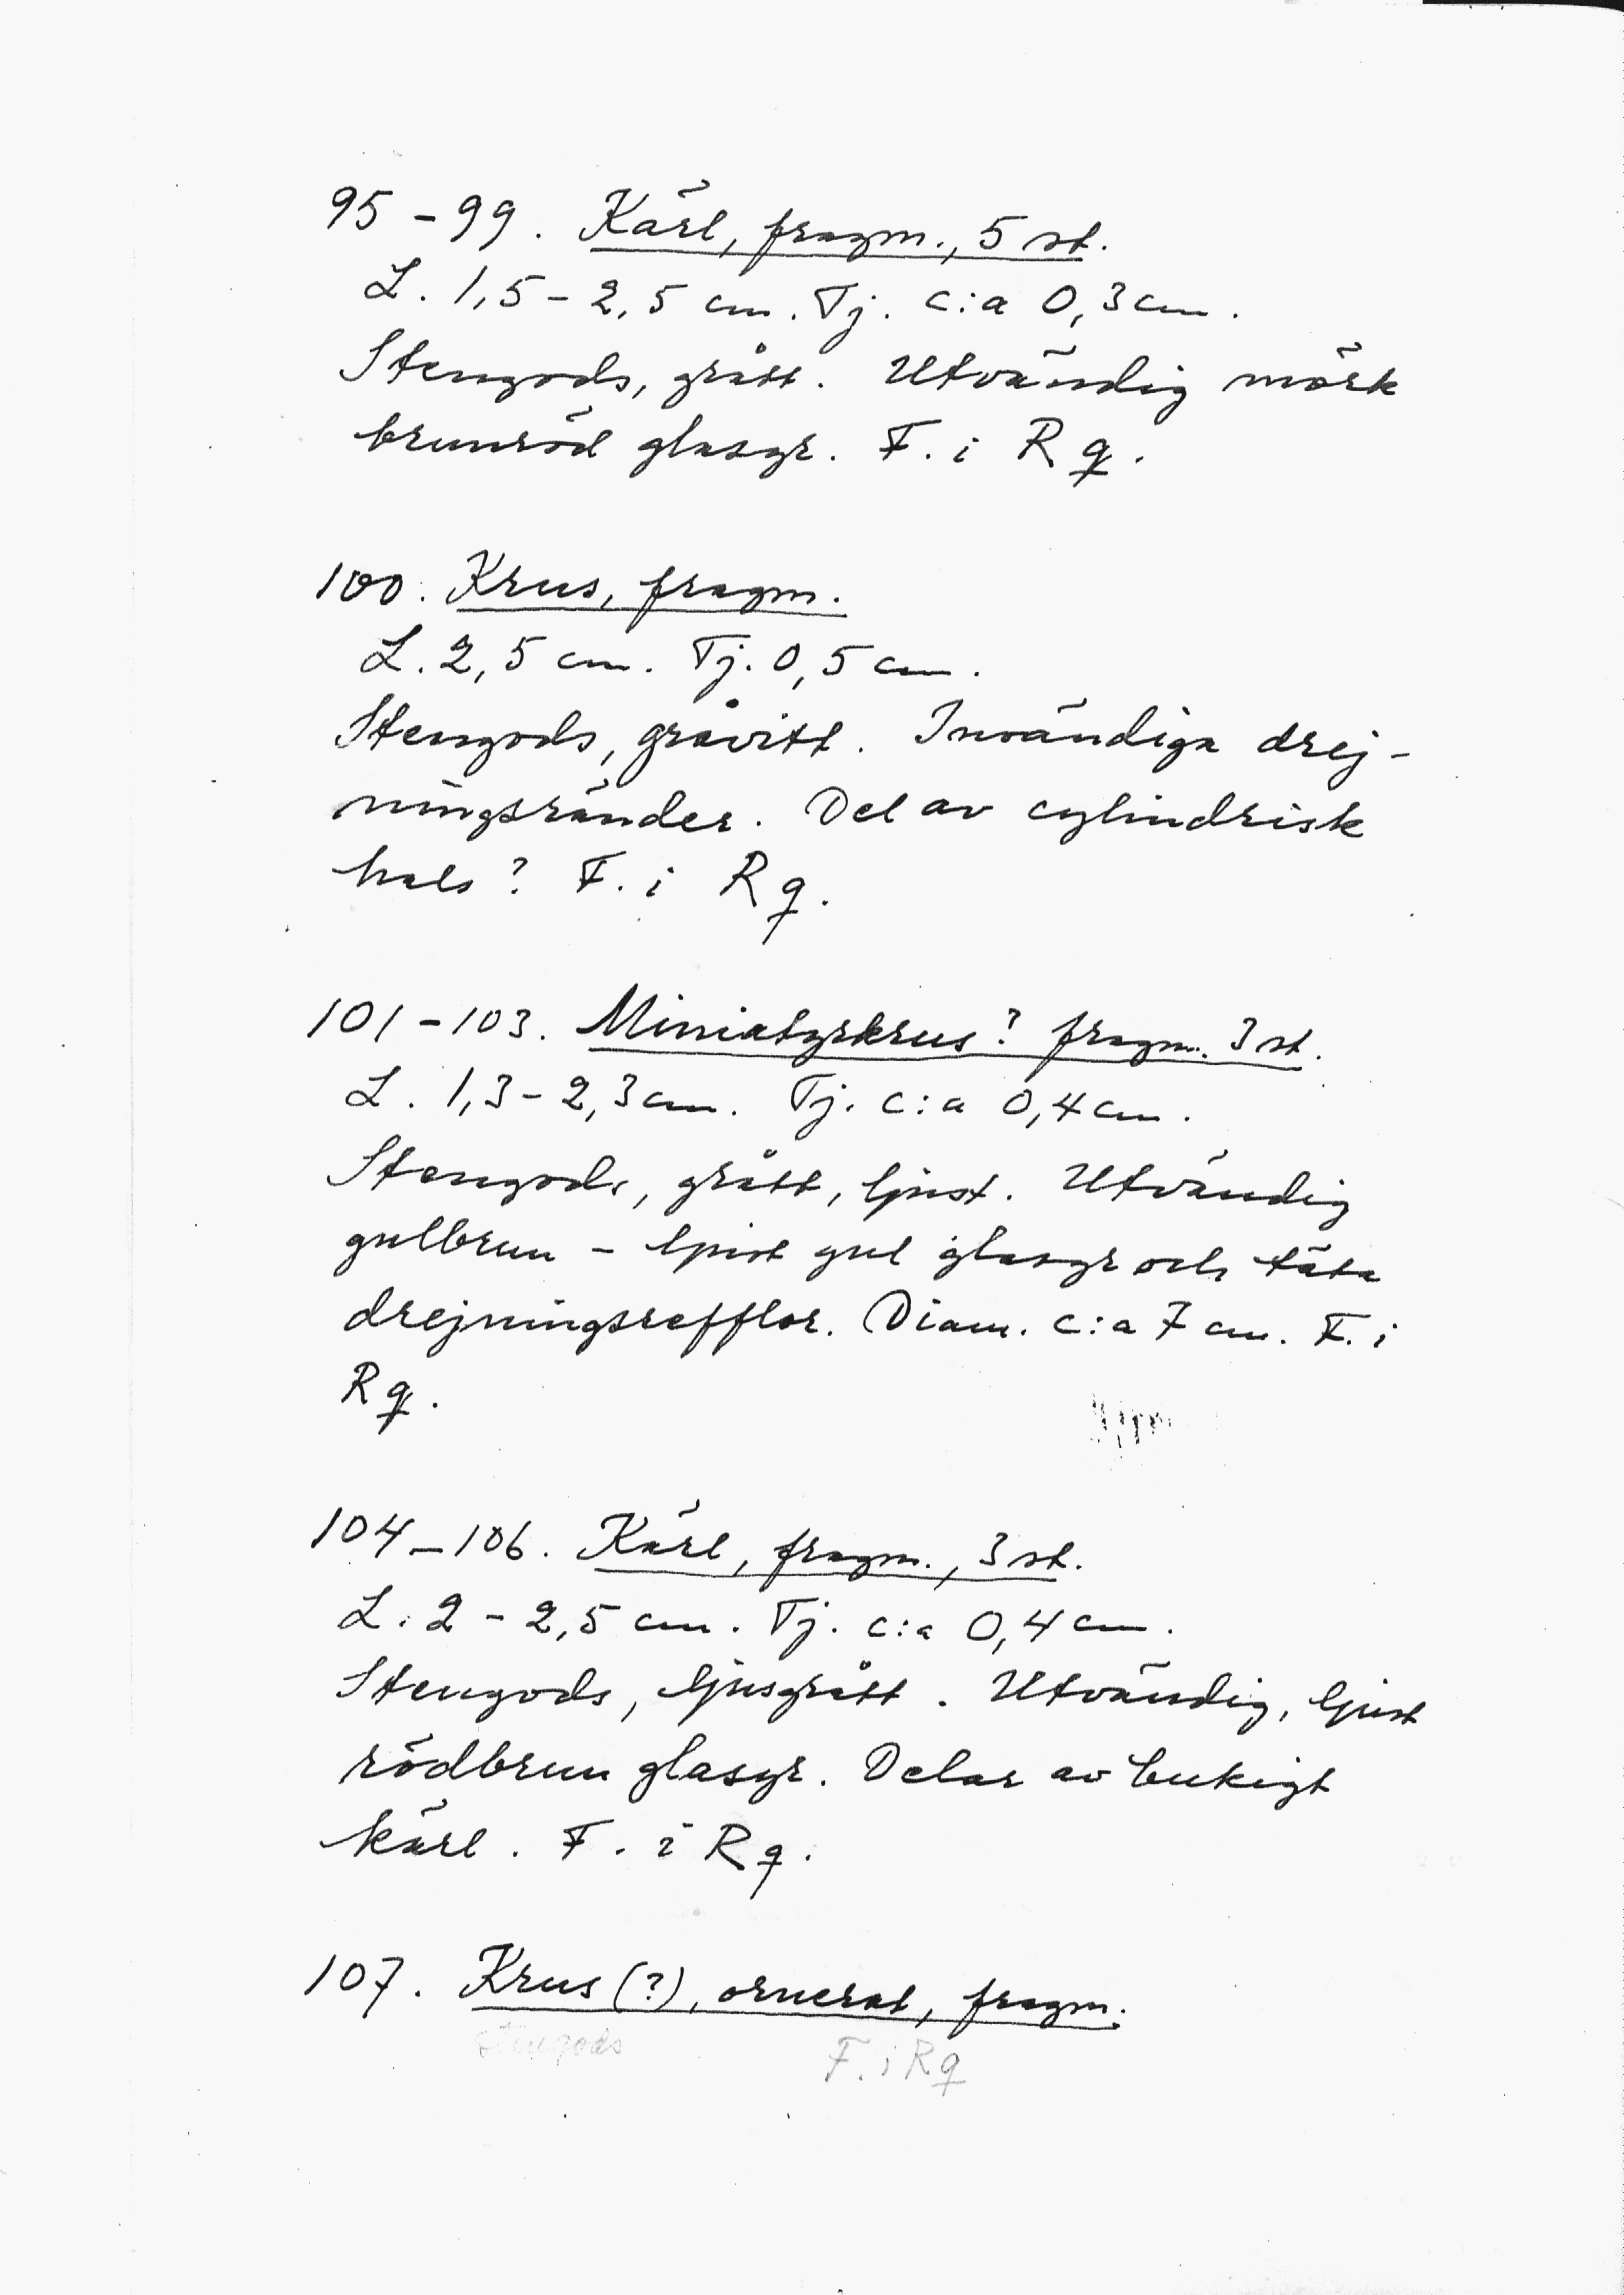 95 - 99. Kärl, fragm., 5 st.
L. 1,5 - 2,5 cm. Tj. c:a 0,3 cm.
Stengods, grått. Utvändig mörk
brunröd glasyr. F. i R q.
100. Krus, fragm.
L. 2,5 cm. Tj. 0,5 cm.
Stengods, gråvitt. Invändiga drej-
ningsränder. Del av cylindrisk
hals? F. i R q.
101 - 103. Miniatyrkrus? fragm. 3 st.
L. 1,3 - 2,3 cm. Tj. c:a 0,4 cm.
Stengods, grått, ljust. Utvändig
gulbrun - ljust gul glasyr och täta
drejningsrefflor. Diam. c:a 7 cm. F. i
R q.
104 - 106. Kärl, fragm., 3 st.
L. 2 - 2,5 cm. Tj. c:a 0,4 cm.
Stengods, ljusgrått. Utvändig, ljust
rödbrun glasyr. Delar av bukigt
kärl. F. i R q.
107. Krus (?), ornerat, fragm.
stengods F. i R q